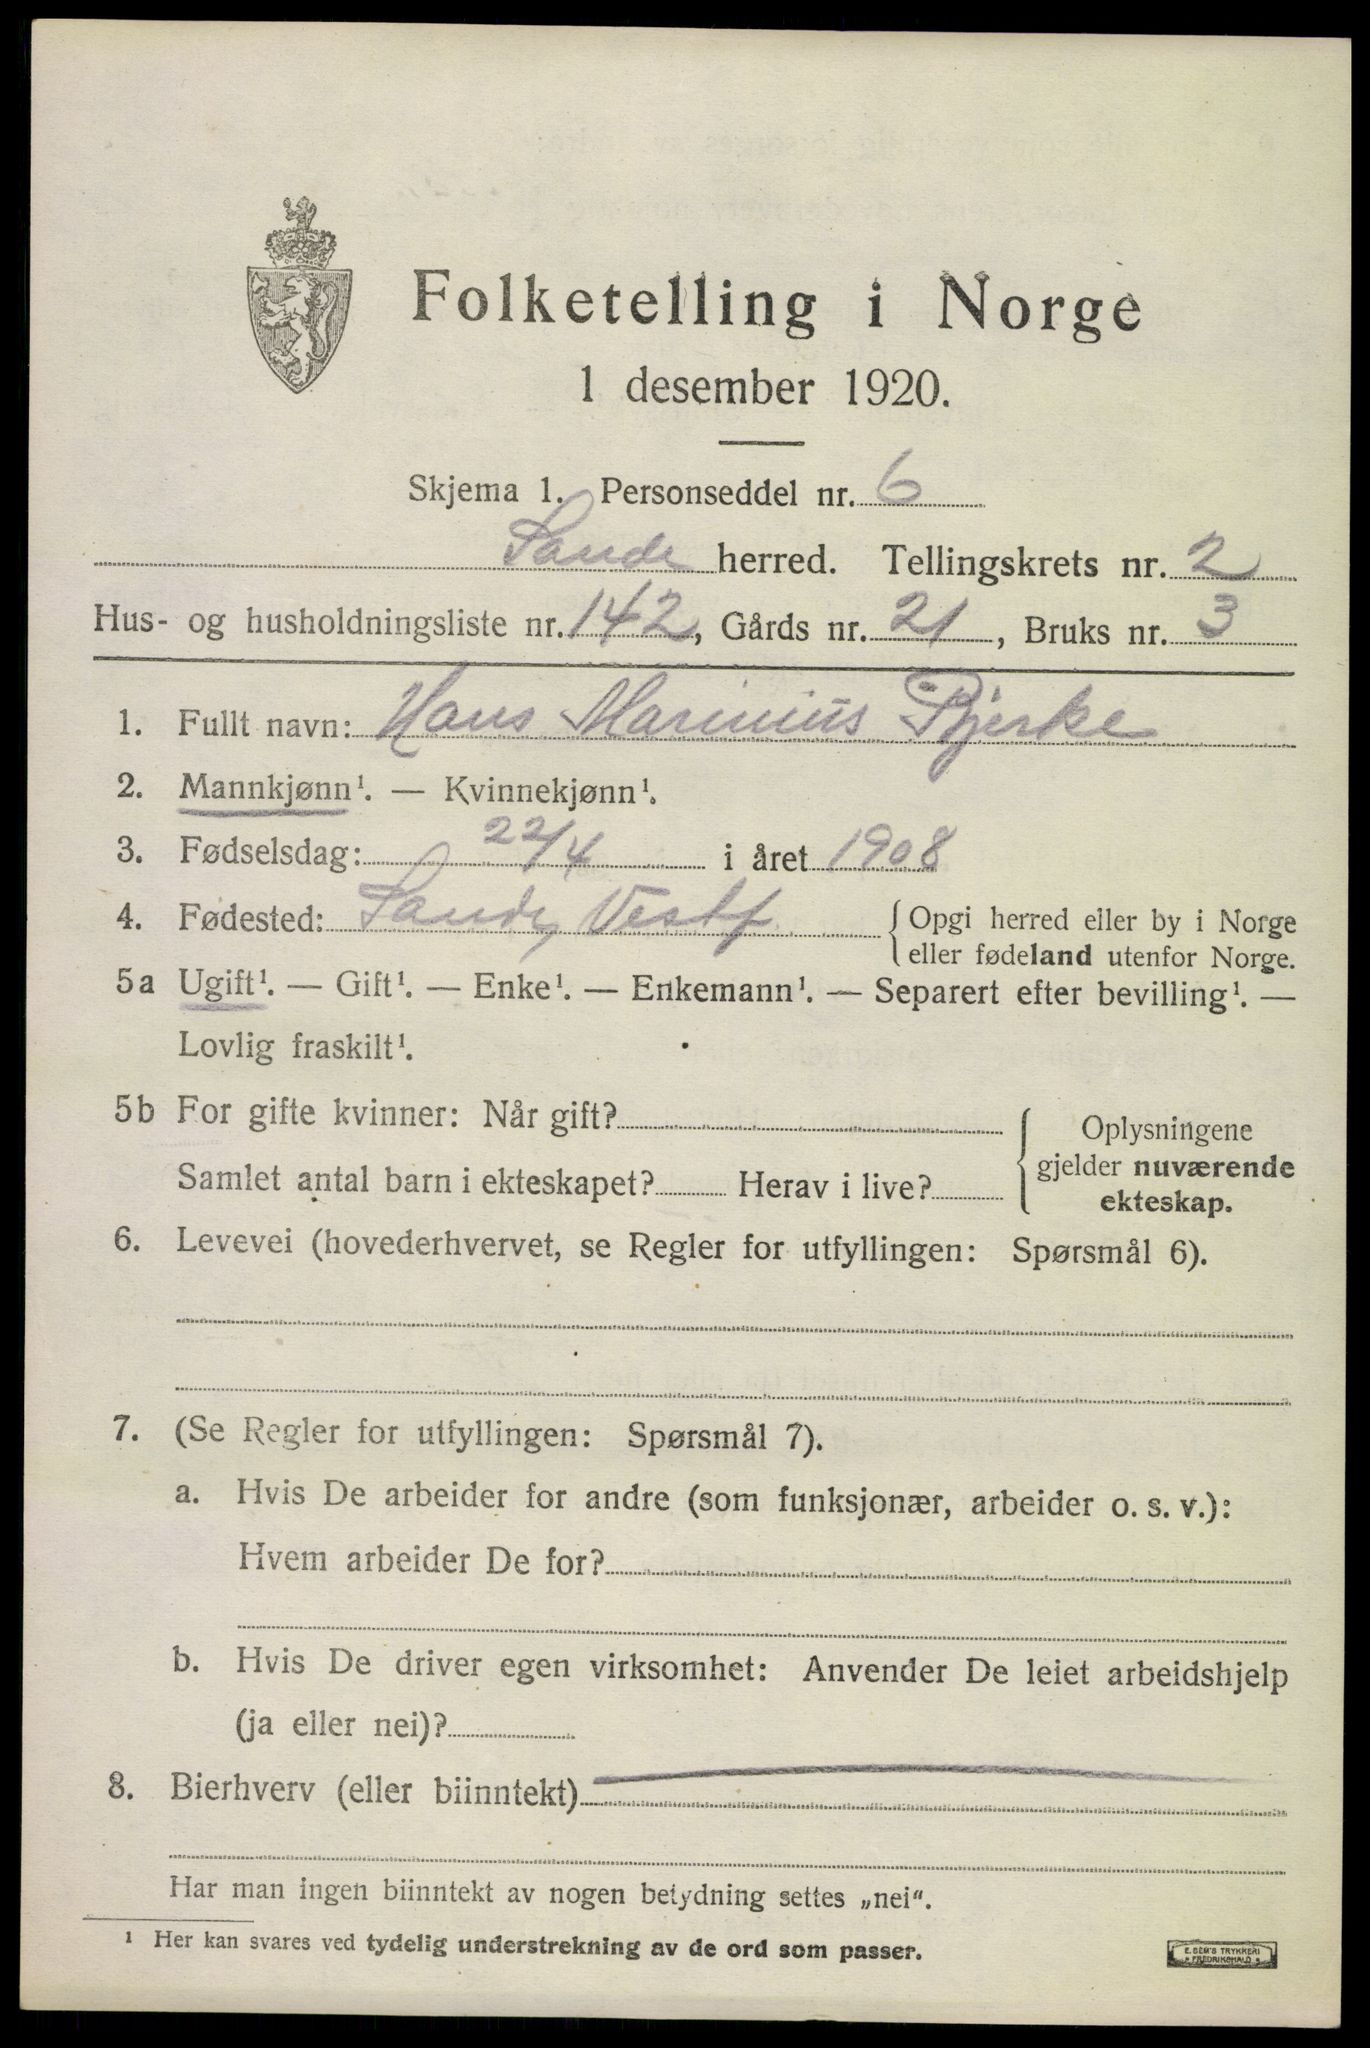 Folketelling i Norge
1 desember 1920.
Skjema 1. Personseddel nr. 6
Sande herred. Tellingskrets nr. 2
Hus- og husholdningsliste nr. 142, Gårds nr. 21, Bruks nr. 3
1. Fullt navn: Hans Marinius Bjerke
2. Mannkjønn¹. — Kvinnekjønn¹.
3. Fødselsdag: 22/4 i året 1908
4. Fødested: Sande, Vestf. { Opgi herred eller by i Norge
eller fødeland utenfor Norge.
5a Ugift¹. — Gift¹. — Enke¹. — Enkemann¹. — Separert efter bevilling¹. —
Lovlig fraskilt¹.
5b For gifte kvinner: Når gift?
Samlet antal barn i ekteskapet? Herav i live?
Oplysningene
gjelder nuværende
ekteskap.
6. Levevei (hovederhvervet, se Regler for utfyllingen: Spørsmål 6).
7. (Se Regler for utfyllingen: Spørsmål 7).
a. Hvis De arbeider for andre (som funksjonær, arbeider o. s. v.):
Hvem arbeider De for?
b. Hvis De driver egen virksomhet: Anvender De leiet arbeidshjelp
(ja eller nei)?
8. Bierhverv (eller biinntekt)
Har man ingen biinntekt av nogen betydning settes „nei“.
¹ Her kan svares ved tydelig understrekning av de ord som passer.
E. SEM'S TRYKKERI
FREDRIKSHALD